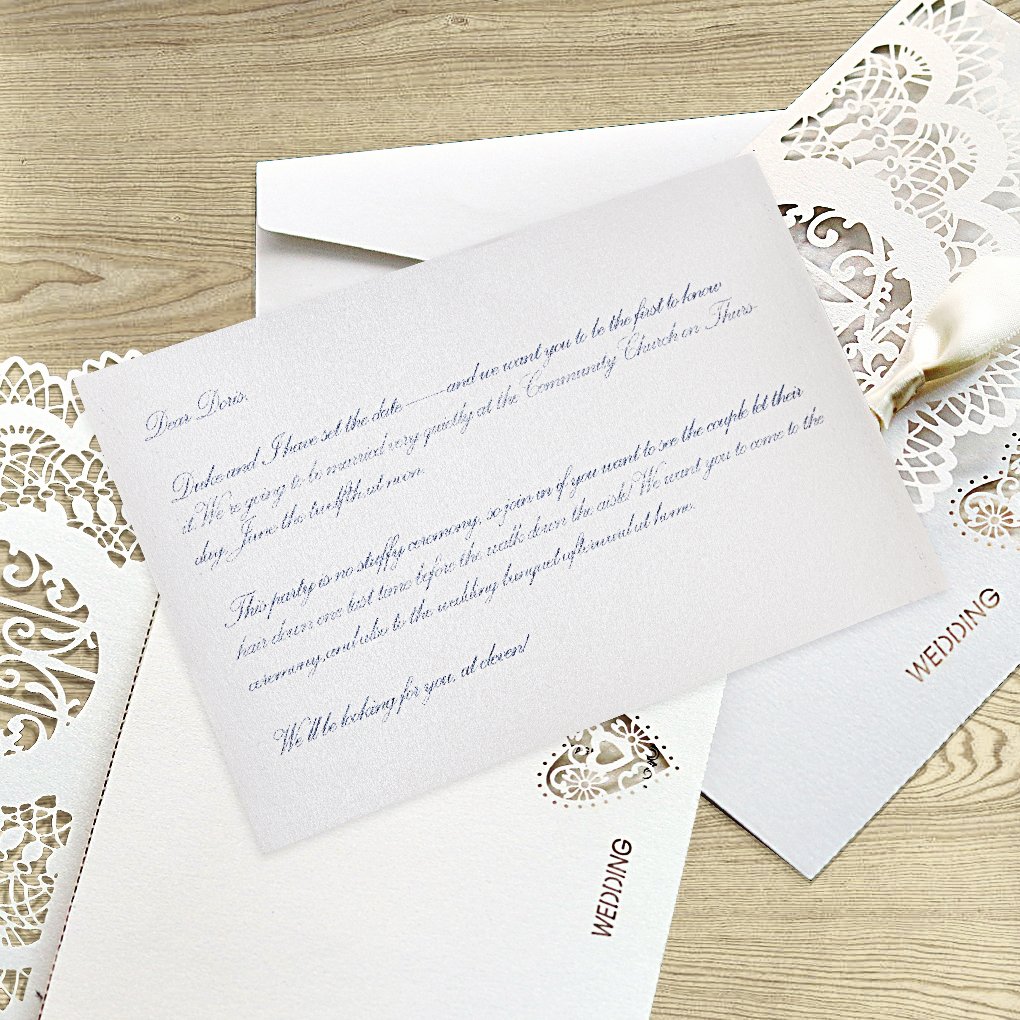 Dear Doris,
Duke and I have set the date——and we want you to be the first to know
it. We're going to be married very quietly at the Community Church on Thurs-
day, June the twelfth at noon.
This party is no stuffy ceremony, so join in if you want to see the couple let their
hair down one last time before the walk down the aisle! We want you to come to the
ceremony, and also to the wedding banquet afterward at home.
We'll be looking for you, at eleven!
WEDDING
WEDDING